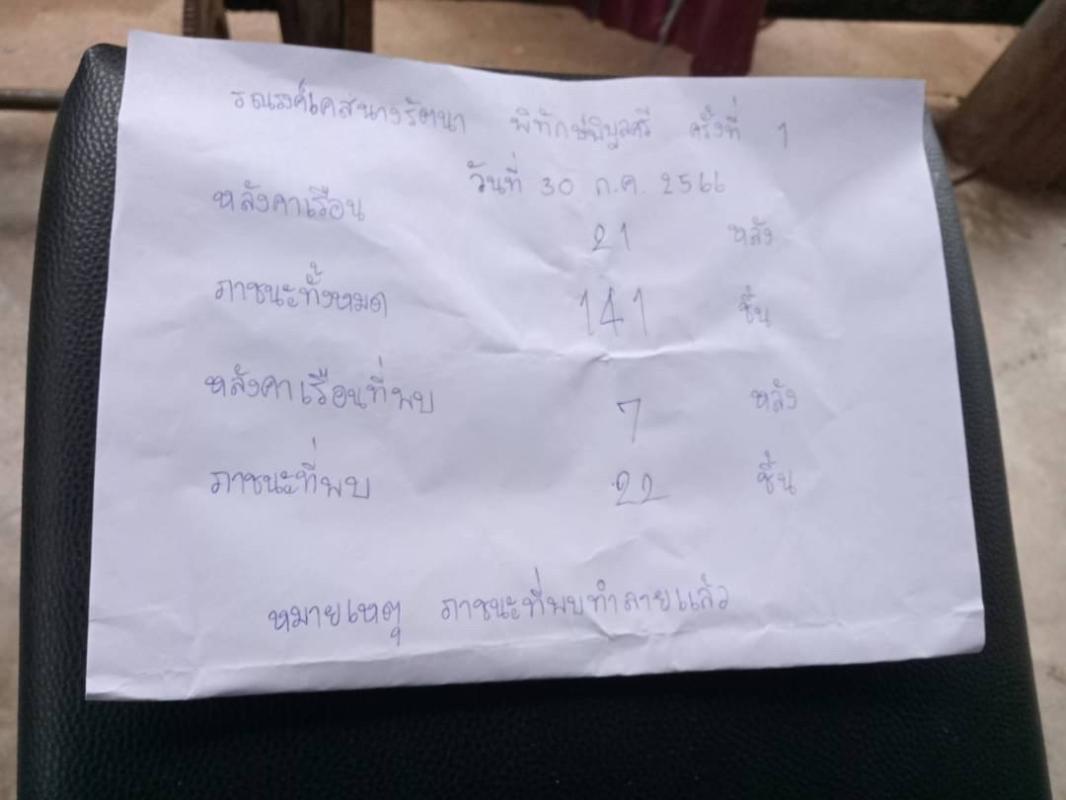 รณรงค์เคสนางรัตนา พิทักษ์พิบูลศรี ครั้งที่ 1
วันที่ 30 ก.ค. 2566
หลังคาเรือน 21 หลัง
ภาชนะทั้งหมด 141 ชิ้น
หลังคาเรือนที่พบ 7 หลัง
ภาชนะที่พบ 22 ชิ้น
หมายเหตุ ภาชนะที่พบทำลายแล้ว